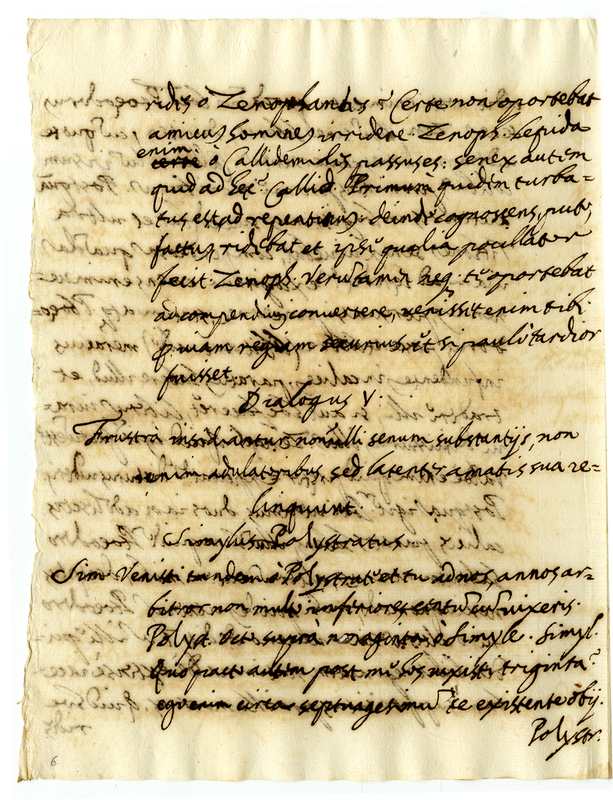 ridis ò Zenophantes? Certe non oportebat
amicus homines irridere. Zenoph. Lepida
enim
certe ò Callidemi dis passus es: senex autem
quid ad hęc? Callid. Primum quidem turba=
tus est ad repentinum: deinde cognoscens, puto,
factum, ridebat et ipse qualia pocillator
fecit. Zenoph. Verumtamen neq. te oportebat
ad compendium convertere, venisset enim tibi
p viam regiam securius, et si paulò tardior
fuisset.
Dialogus V.
Frustrà insidiantur nonnulli senum substantijs, non
enim adulatoribus, sed latenter amatis sua re=
linquunt.
Simylus. Polystratus.
Sim. Venisti tandem ò Polystrate et tu ad nos, annos ar-
bitror non multò inferiores centum cum vixeris.
Polyst. Octo suprà nonaginta ò Simyle. Simyl.
Quo pacto autem post me hos vixisti triginta?
ego enim circa septuagesimum te existente obij.
Polystr.
6